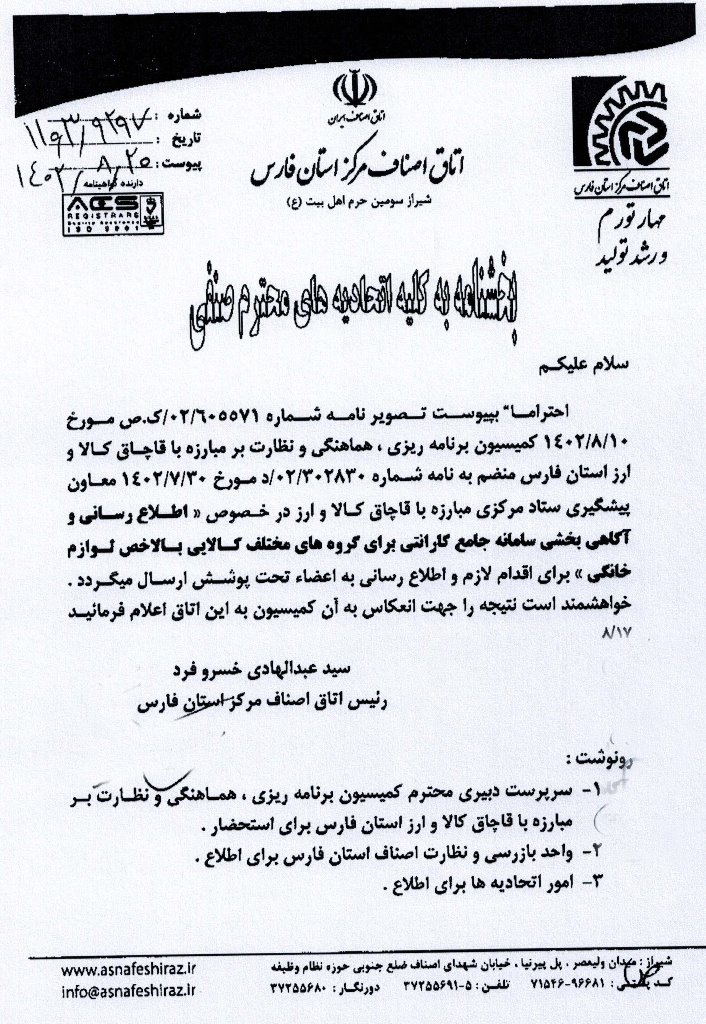 اتاق اصناف ایران
اتاق اصناف مرکز استان فارس
شیراز سومین حرم اهل بیت (ع)
اتاق اصناف مرکز استان فارس
مهار تورم
و رشد تولید
شماره :
تاریخ :
پیوست :
۱۴۰۲/۸/۲۰
دارنده گواهینامه
ACS
REGISTRARS
ISO 9001
بخشنامه به کلیه اتحادیه های محترم صنفی
سلام علیکم
احتراما" بپیوست تصویر نامه شماره ۰۲/۶۰۵۵۷۱/ک.ص مورخ
۱۴۰۲/۸/۱۰ کمیسیون برنامه ریزی ، هماهنگی و نظارت بر مبارزه با قاچاق کالا و
ارز استان فارس منضم به نامه شماره ۰۲/۳۰۲۸۳۰/د مورخ ۱۴۰۲/۷/۳۰ معاون
پیشگیری ستاد مرکزی مبارزه با قاچاق کالا و ارز در خصوص « اطلاع رسانی و
آگاهی بخشی سامانه جامع گارانتی برای گروه های مختلف کالایی بالاخص لوازم
خانگی » برای اقدام لازم و اطلاع رسانی به اعضاء تحت پوشش ارسال میگردد .
خواهشمند است نتیجه را جهت انعکاس به آن کمیسیون به این اتاق اعلام فرمائید
۸/۱۷
سید عبدالهادی خسرو فرد
رئیس اتاق اصناف مرکز استان فارس
رونوشت :
۱- سرپرست دبیری محترم کمیسیون برنامه ریزی ، هماهنگی و نظارت بر
مبارزه با قاچاق کالا و ارز استان فارس برای استحضار .
۲- واحد بازرسی و نظارت اصناف استان فارس برای اطلاع .
۳- امور اتحادیه ها برای اطلاع .
شیراز : میدان ولیعصر ، پل پیرنیا ، خیابان شهدای اصناف ضلع جنوبی حوزه نظام وظیفه
کد پستی : ۹۶۶۸۱-۷۱۵۴۶ تلفن : ۵-۳۷۲۵۵۶۹۱ دورنگار : ۳۷۲۵۵۶۸۰
www.asnafeshiraz.ir
info@asnafeshiraz.ir